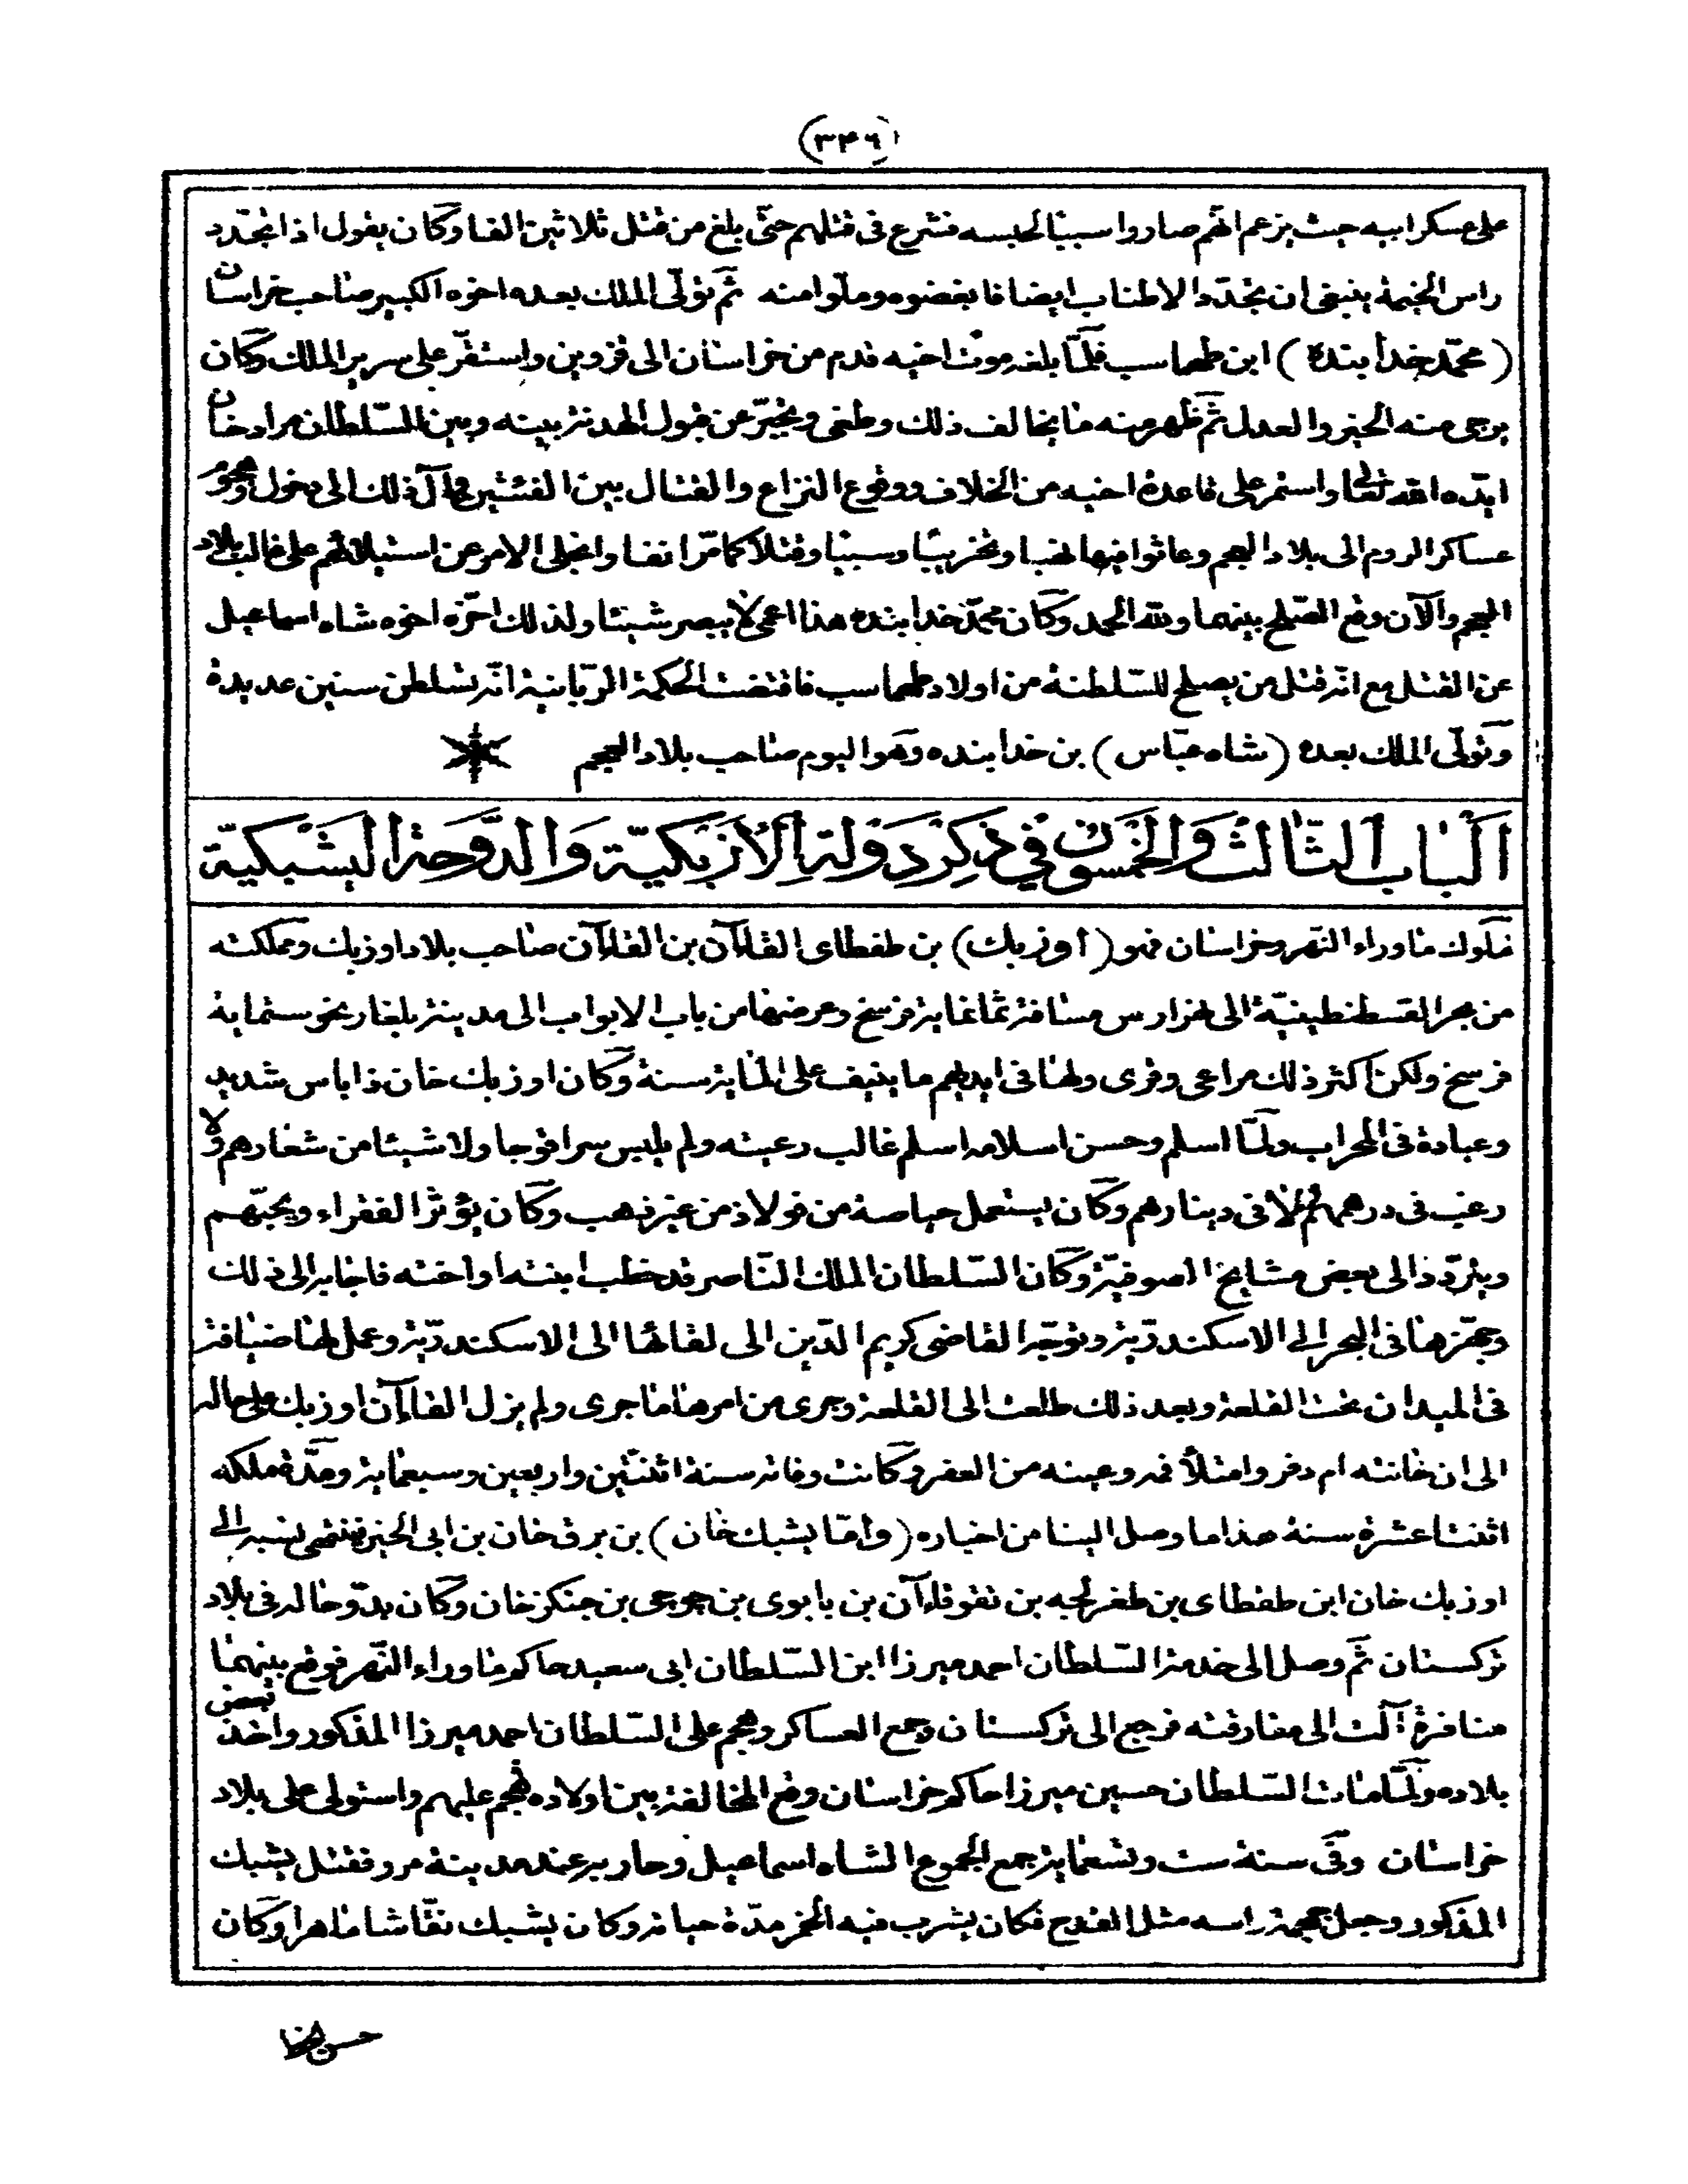 (٣٤٦)
على عسكر ابيه حيث يزعم انهم صاروا سببا لحبسه فشرع فى قتلهم حتى بلغ من قتل ثلاثين الفا وكان يقول اذا تجدد
راس الخيمة ينبغى ان تجدد الاطناب ايضا فابغضوه وملوا منه ثم تولى الملك بعده اخوه الكبير صاحب خراسان
(محمد خدا بنده) ابن طهماسب فلما بلغه موت اخيه قدم من خراسان الى قزوين واستقر على سرير الملك وكان
يرجى منه الخير والعدل ثم ظهر منه ما يخالف ذلك وطغى وتجبر عن قبول الهدنة بينه وبين السلطان مراد خان
ايده الله تعالى واستمر على قاعدة اخيه من الخلاف ووقوع النزاع والقتال بين الفئتين فآل ذلك الى دخول وهجوم
عساكر الروم الى بلاد العجم وعاثوا فيها نهبا وتخريبا وسبيا وقتلا كما مر انفا وانجلى الامر عن استيلائهم على غالب بلاد
العجم والآن وقع الصلح بينهما ولله الحمد وكان محمد خدا بنده هذا اعمى لا يبصر شيئا ولذلك اخره اخوه شاه اسماعيل
عن القتل مع انه قتل من يصلح للسلطنة من اولاد طهماسب فاقتضت الحكمة الربانية انه تسلطن سنين عديدة
وتولى الملك بعده (شاه عباس) بن خدا بنده وهو اليوم صاحب بلاد العجم
اَلْبَاب الثَّالث وَالخَمسون فِي ذِكرِ دَوْلَةِ الأُزبَكيّة وَالدَّوحَة البشبكية
فملوك ما وراء النهر وخراسان فهو (اوزبك) بن طفطاى القاآن بن القاآن صاحب بلاد اوزبك ومملكته
من بحر القسطنطينية الى نهر ارس مسافة ثمانماية فرسخ وعرضها من باب الابواب الى مدينة بلغار نحو ستماية
فرسخ ولكن اكثر ذلك مراعى وقرى ولها فى ايديهم ما ينيف على الماية سنة وكان اوزبك خان ذا باس شديد
وعبادة فى المحراب ولما اسلم وحسن اسلامه اسلم غالب رعيته ولم يلبس سراقوجا ولا شيئا من شعارهم ولا
رغب فى درهمهم ولا فى دينارهم وكان يستعمل حياصة من فولاذ من غير ذهب وكان يؤثر الفقراء ويحبهم
ويتردد الى بعض مشايخ الصوفية وكان السلطان الملك الناصر قد خطب ابنته او اخته فاجابه الى ذلك
وجهزها فى البحر الى الاسكندرية وتوجه القاضى كريم الدين الى لقائها الى الاسكندرية وعمل لها ضيافة
فى الميدان تحت القلعة وبعد ذلك طلعت الى القلعة وجرى من امرها ما جرى ولم يزل القاآن اوزبك على حاله
الى ان خانته ام دفر وامتلأ فمه وعينه من العفر وكانت وفاته سنة اثنتين واربعين وسبعماية ومدة ملكه
اثنتا عشرة سنة هذا ما وصل الينا من اخباره (واما يشبك خان) بن برق خان بن ابى الخير فتنتهى نسبه الى
اوزبك خان ابن طفطاى بن طغرلجه بن نقوقاآن بن بابوى بن جوجى بن جنكزخان وكان بدو حاله فى بلاد
تركستان ثم وصل الى خدمة السلطان احمد ميرزا ابن السلطان ابى سعيد حاكم ما وراء النهر فوقع بينهما
منافرة آلت الى مفارقته فرجع الى تركستان وجمع العساكر وهجم على السلطان احمد ميرزا المذكور واخذ بعض
بلاده ولما مات السلطان حسين ميرزا حاكم خراسان وقع المخالفة بين اولاده فهجم عليهم واستولى على بلاد
خراسان وفى سنة ست وتسعماية جمع الجموع الشاه اسماعيل وحاربه عند مدينة مرو فقتل يشبك
المذكور وجعل جمجمة راسه مثل القدح فكان يشرب فيه الخمر مدة حياته وكان يشبك نقاشا ماهرا وكان